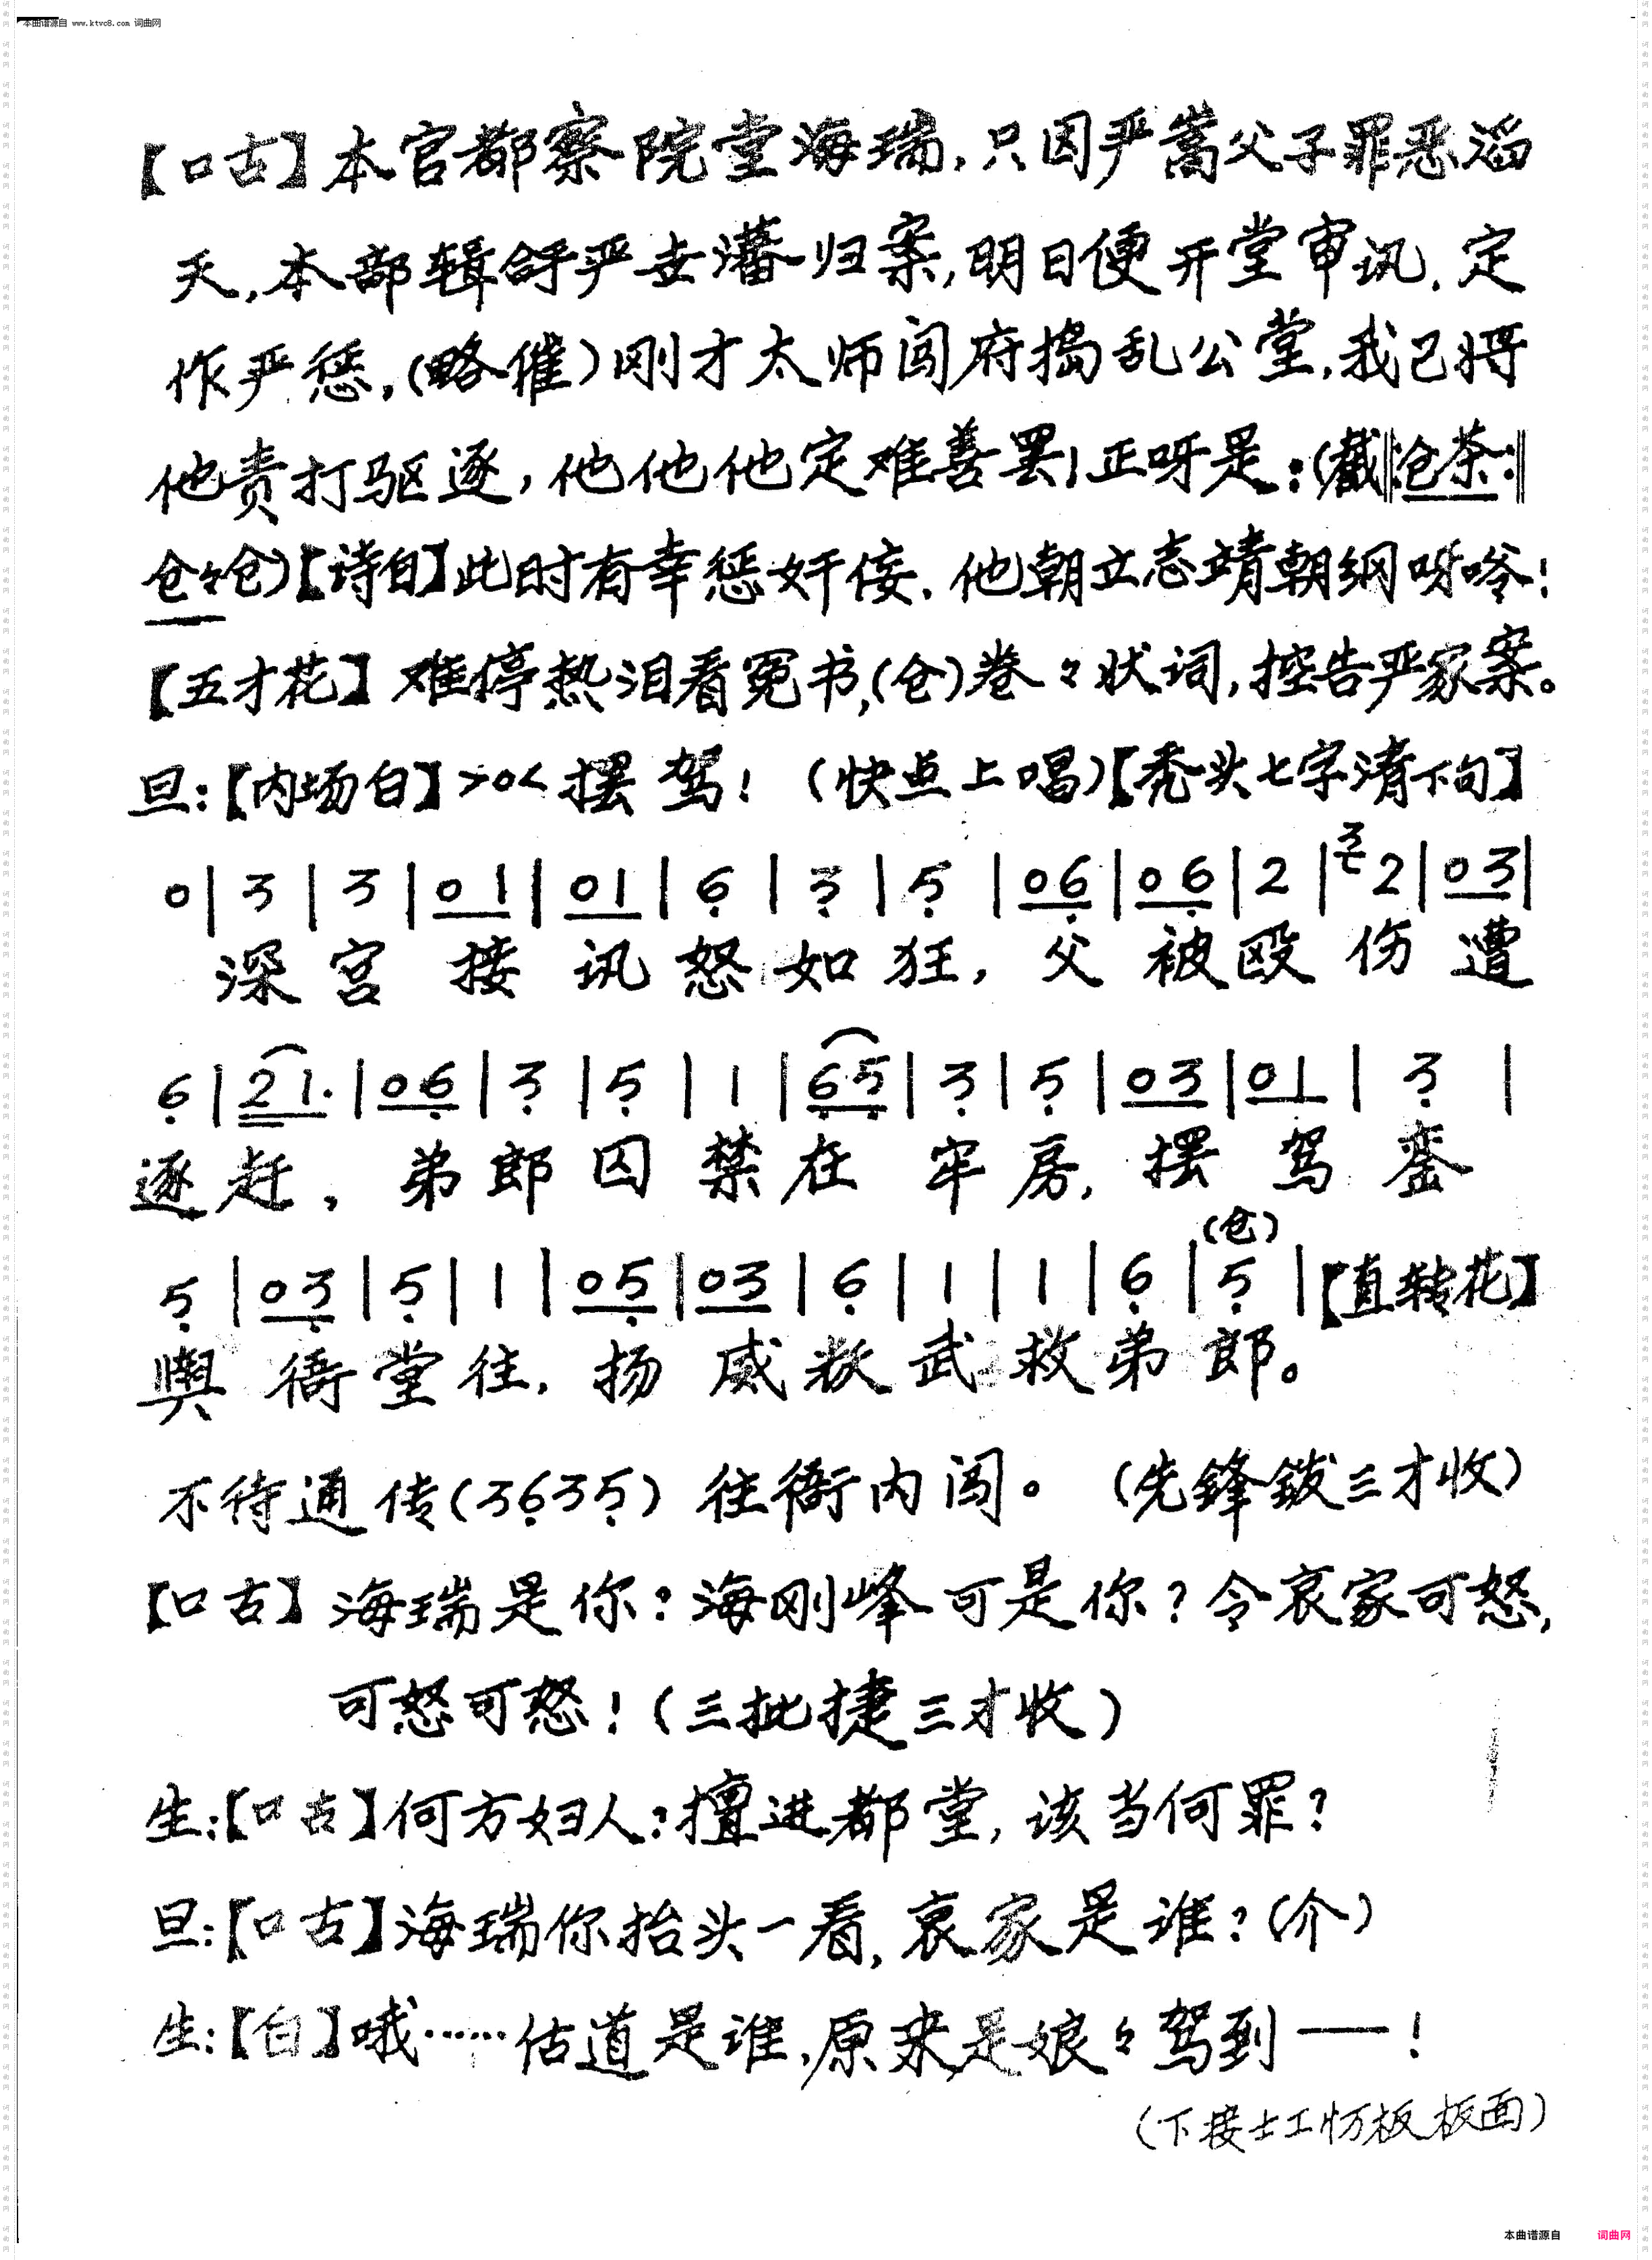 本曲谱源自 www.ktvc8.com 词曲网
【口古】本官都察院堂海瑞,只因严嵩父子罪恶滔
天,本部缉 严世藩归案,明日便开堂审讯,定
作严惩,(略催)刚才太师闯府捣乱公堂,我已将
他责打驱逐,他他他定难善罢!正呀是:(截‖:沧茶:‖
仓々仓)【诗白】此时有幸惩奸佞,他朝立志靖朝纲呀呤!
【五才花】难停热泪看冤书,(仓)卷々状词,控告严家案。
旦:【内场白】>o<摆驾!(快点上唱)【秃头七字清下句】
0|3|3|0 1|0 1|6̣|3̣|5̣|0 6̣|0 6̣|2|3 2|0 3|
深宫接讯怒如狂,父被殴伤遭
6̣|2 1.|0 6̣|3̣|5̣|1|6̣ 5̣|3̣|5̣|0 3|0 1|3̣|
逐赶,弟郎囚禁在牢房,摆驾銮
(仓)
5̣|0 3̣|5̣|1|0 5̣|0 3|6̣|1|1|6̣|5̣|【直转花】
舆衙堂往,扬威 武救弟郎。
不待通传(36̣35̣)往衙内闯。(先锋鈸三才收)
【口古】海瑞是你?海刚峰可是你?令哀家可怒,
可怒可怒!(三批捷三才收)
生:【口古】何方妇人?擅进都堂,该当何罪?
旦:【口古】海瑞你抬头一看,哀家是谁?(介)
生:【白】哦……估道是谁,原来是娘々驾到——!
(下接士工忉板板面)
本曲谱源自 词曲网